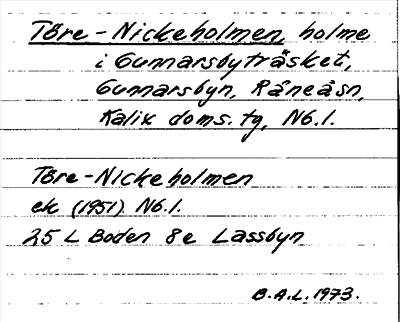 Töre-Nickeholmen, holme
i Gunnarsbyträsket,
Gunnarsbyn, Råneå sn,
Kalix doms. tg, Nb. l.
Töre-Nickeholmen
ek (1951) Nb. l.
25 L Boden 8e Lassbyn
B.A.L. 1973.